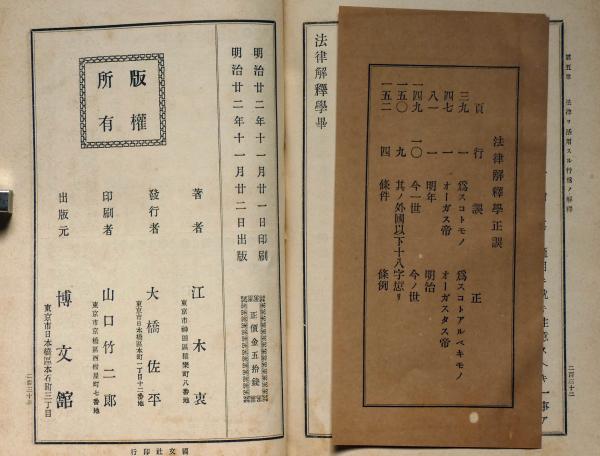 第五章 法律ヲ活用スル行爲ノ解釋
二百三十二
法律解釋學正誤
頁 行 誤 正
三九 一 爲スコトモノ 爲スコトアルベキモノ
四七 一 オーガス帝 オーガスタス帝
八一 一 明年 明治
一四九 一〇 今一世 今ノ世
一五〇 九 其ノ外國以下十八字愆リ
一五二 四 條件 條例
法律解釋學畢
明治廿二年十一月廿一日印刷
明治廿二年十一月廿二日出版
正價金五拾錢
版權所有
著者 江木衷
東京市神田區猿樂町八番地
發行者 大橋佐平
東京市日本橋區本町一丁目十二番地
印刷者 山口竹二郎
東京市京橋區西紺屋町七番地
出版元 博文館
東京市日本橋區本石町三丁目
二百三十三
國文社印行